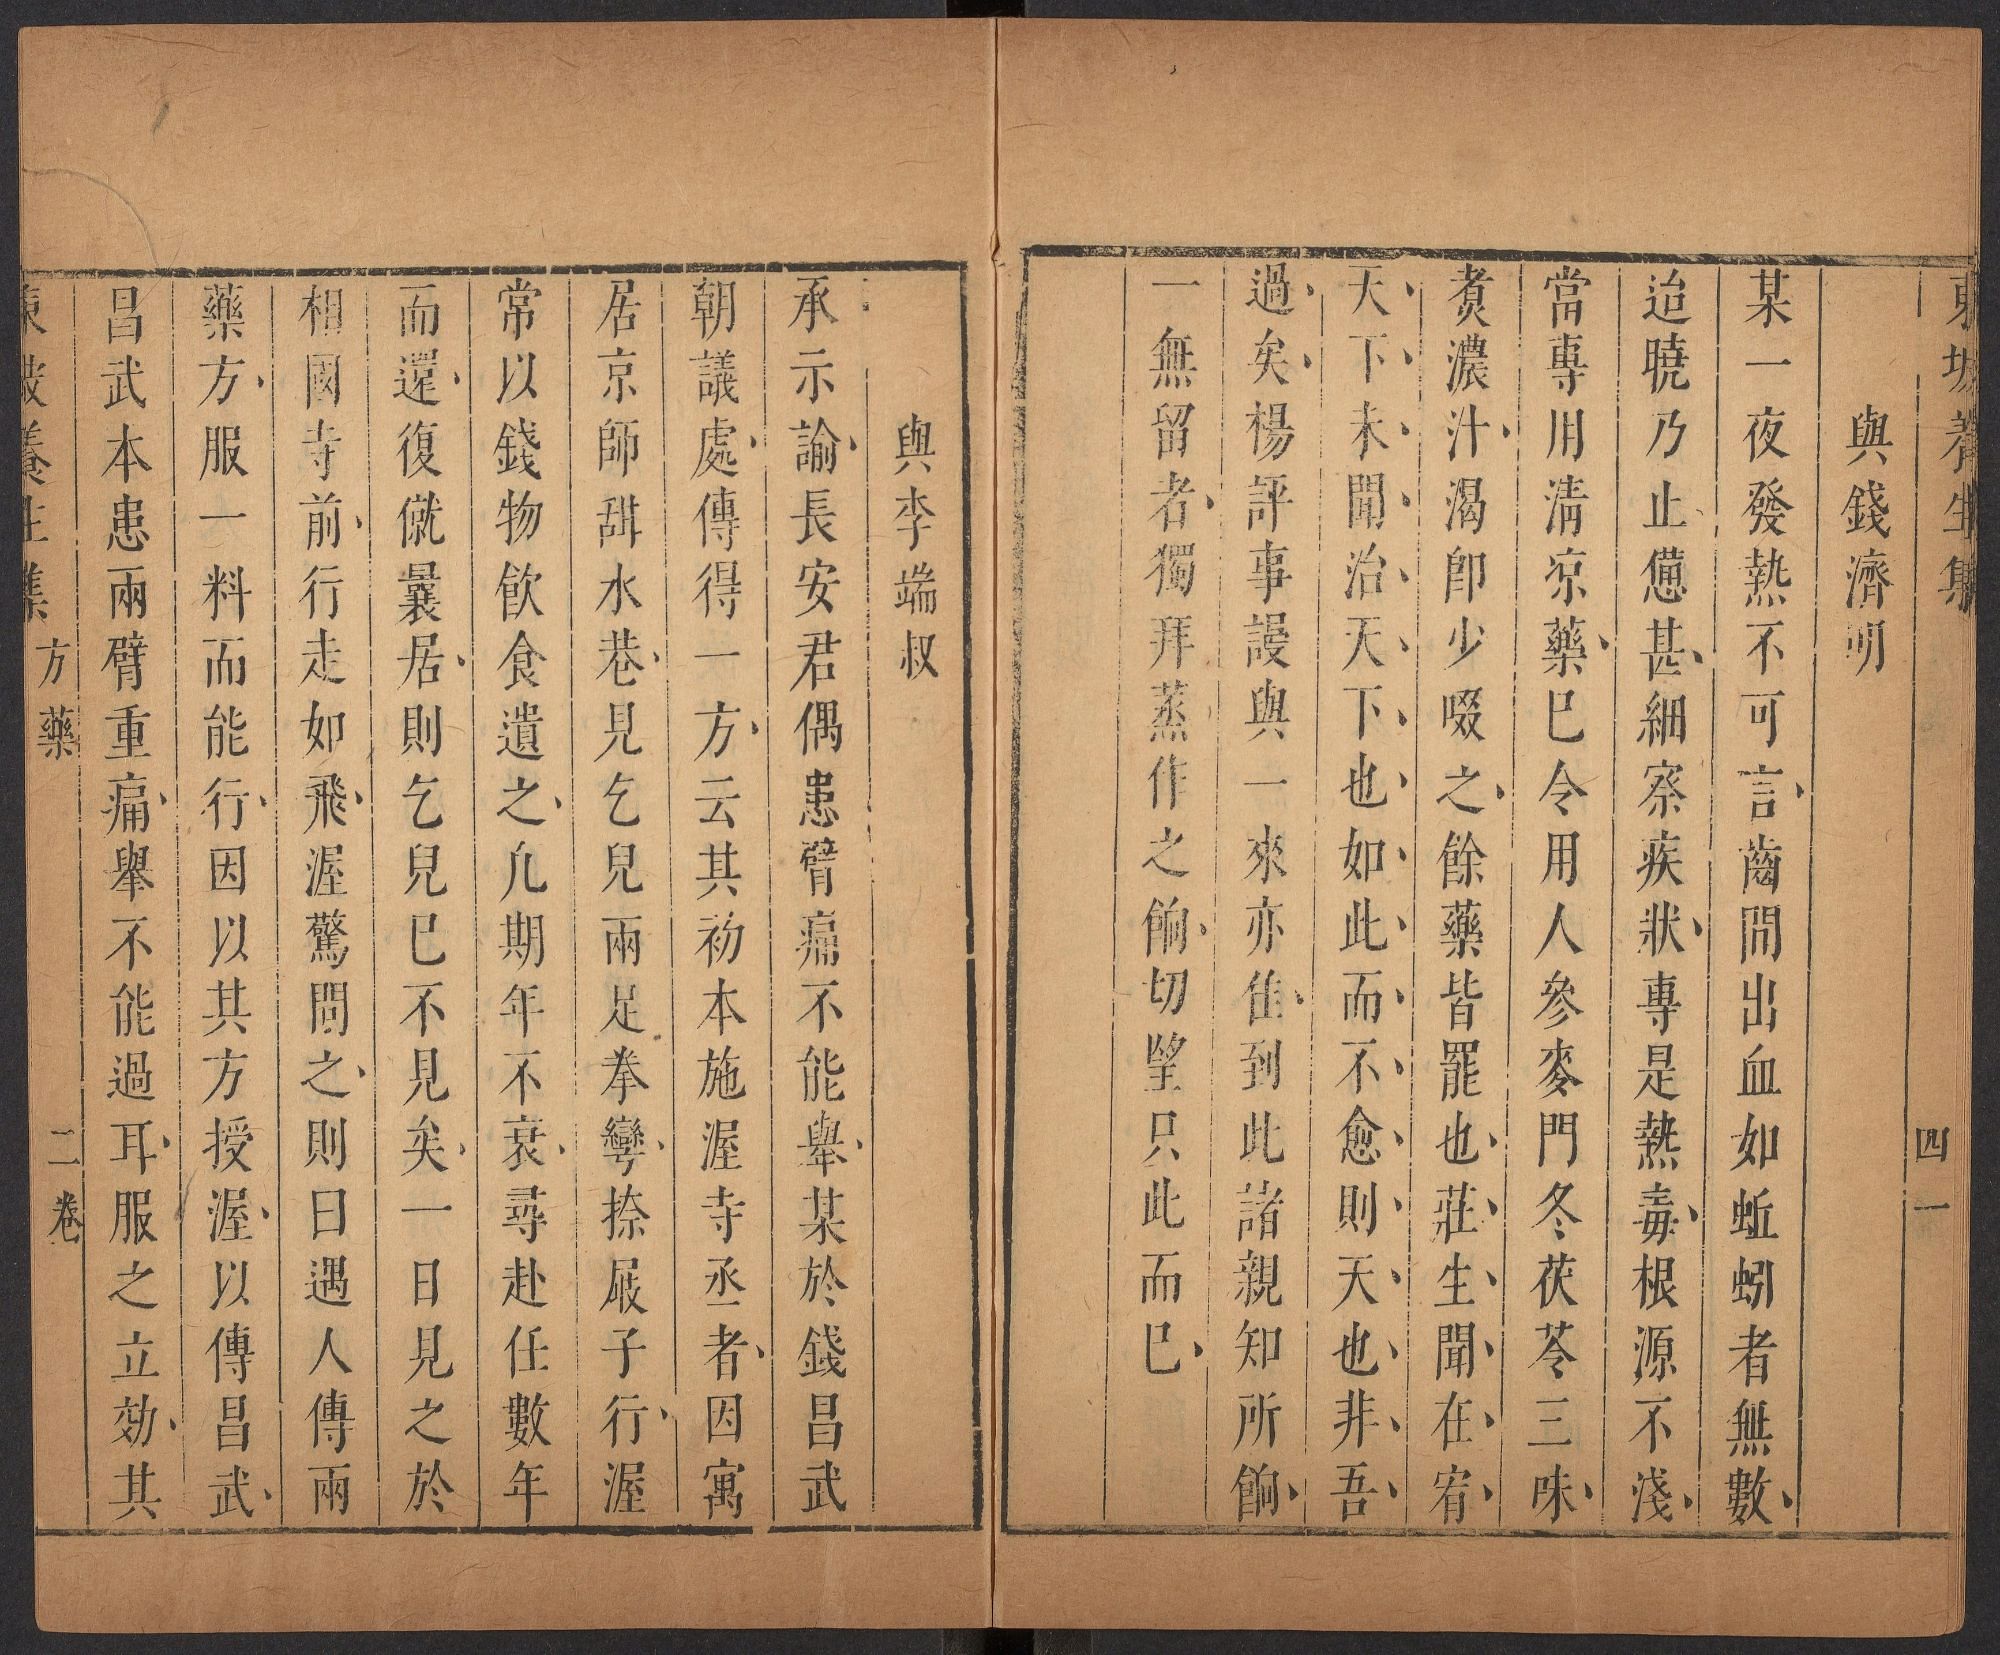 東坡養生集
四一
與錢濟明
某一夜發熱不可言齒間出血如蚯蚓者無數
迨曉乃止憊甚細察疾狀專是熱毒根源不淺
當專用清凉藥已令用人參麥門冬茯苓三味
煑濃汁渴卽少啜之餘藥皆罷也莊生聞在宥
天下未聞治天下也如此而不愈則天也非吾
過矣楊評事謾與一來亦佳到此諸親知所餉
一無留者獨拜蒸作之餉切望只此而已
與李端叔
承示諭長安君偶患臂痛不能舉某於錢昌武
朝議處傳得一方云其初本施渥寺丞者因寓
居京師甜水巷見乞兒兩足拳攣捺屐子行渥
常以錢物飲食遺之凡期年不衰尋赴任數年
而還復僦曩居則乞兒已不見矣一日見之於
相國寺前行走如飛渥驚問之則曰遇人傳兩
藥方服一料而能行因以其方授渥以傳昌武
昌武本患兩臂重痛舉不能過耳服之立効其
東坡養生集
方藥
二卷